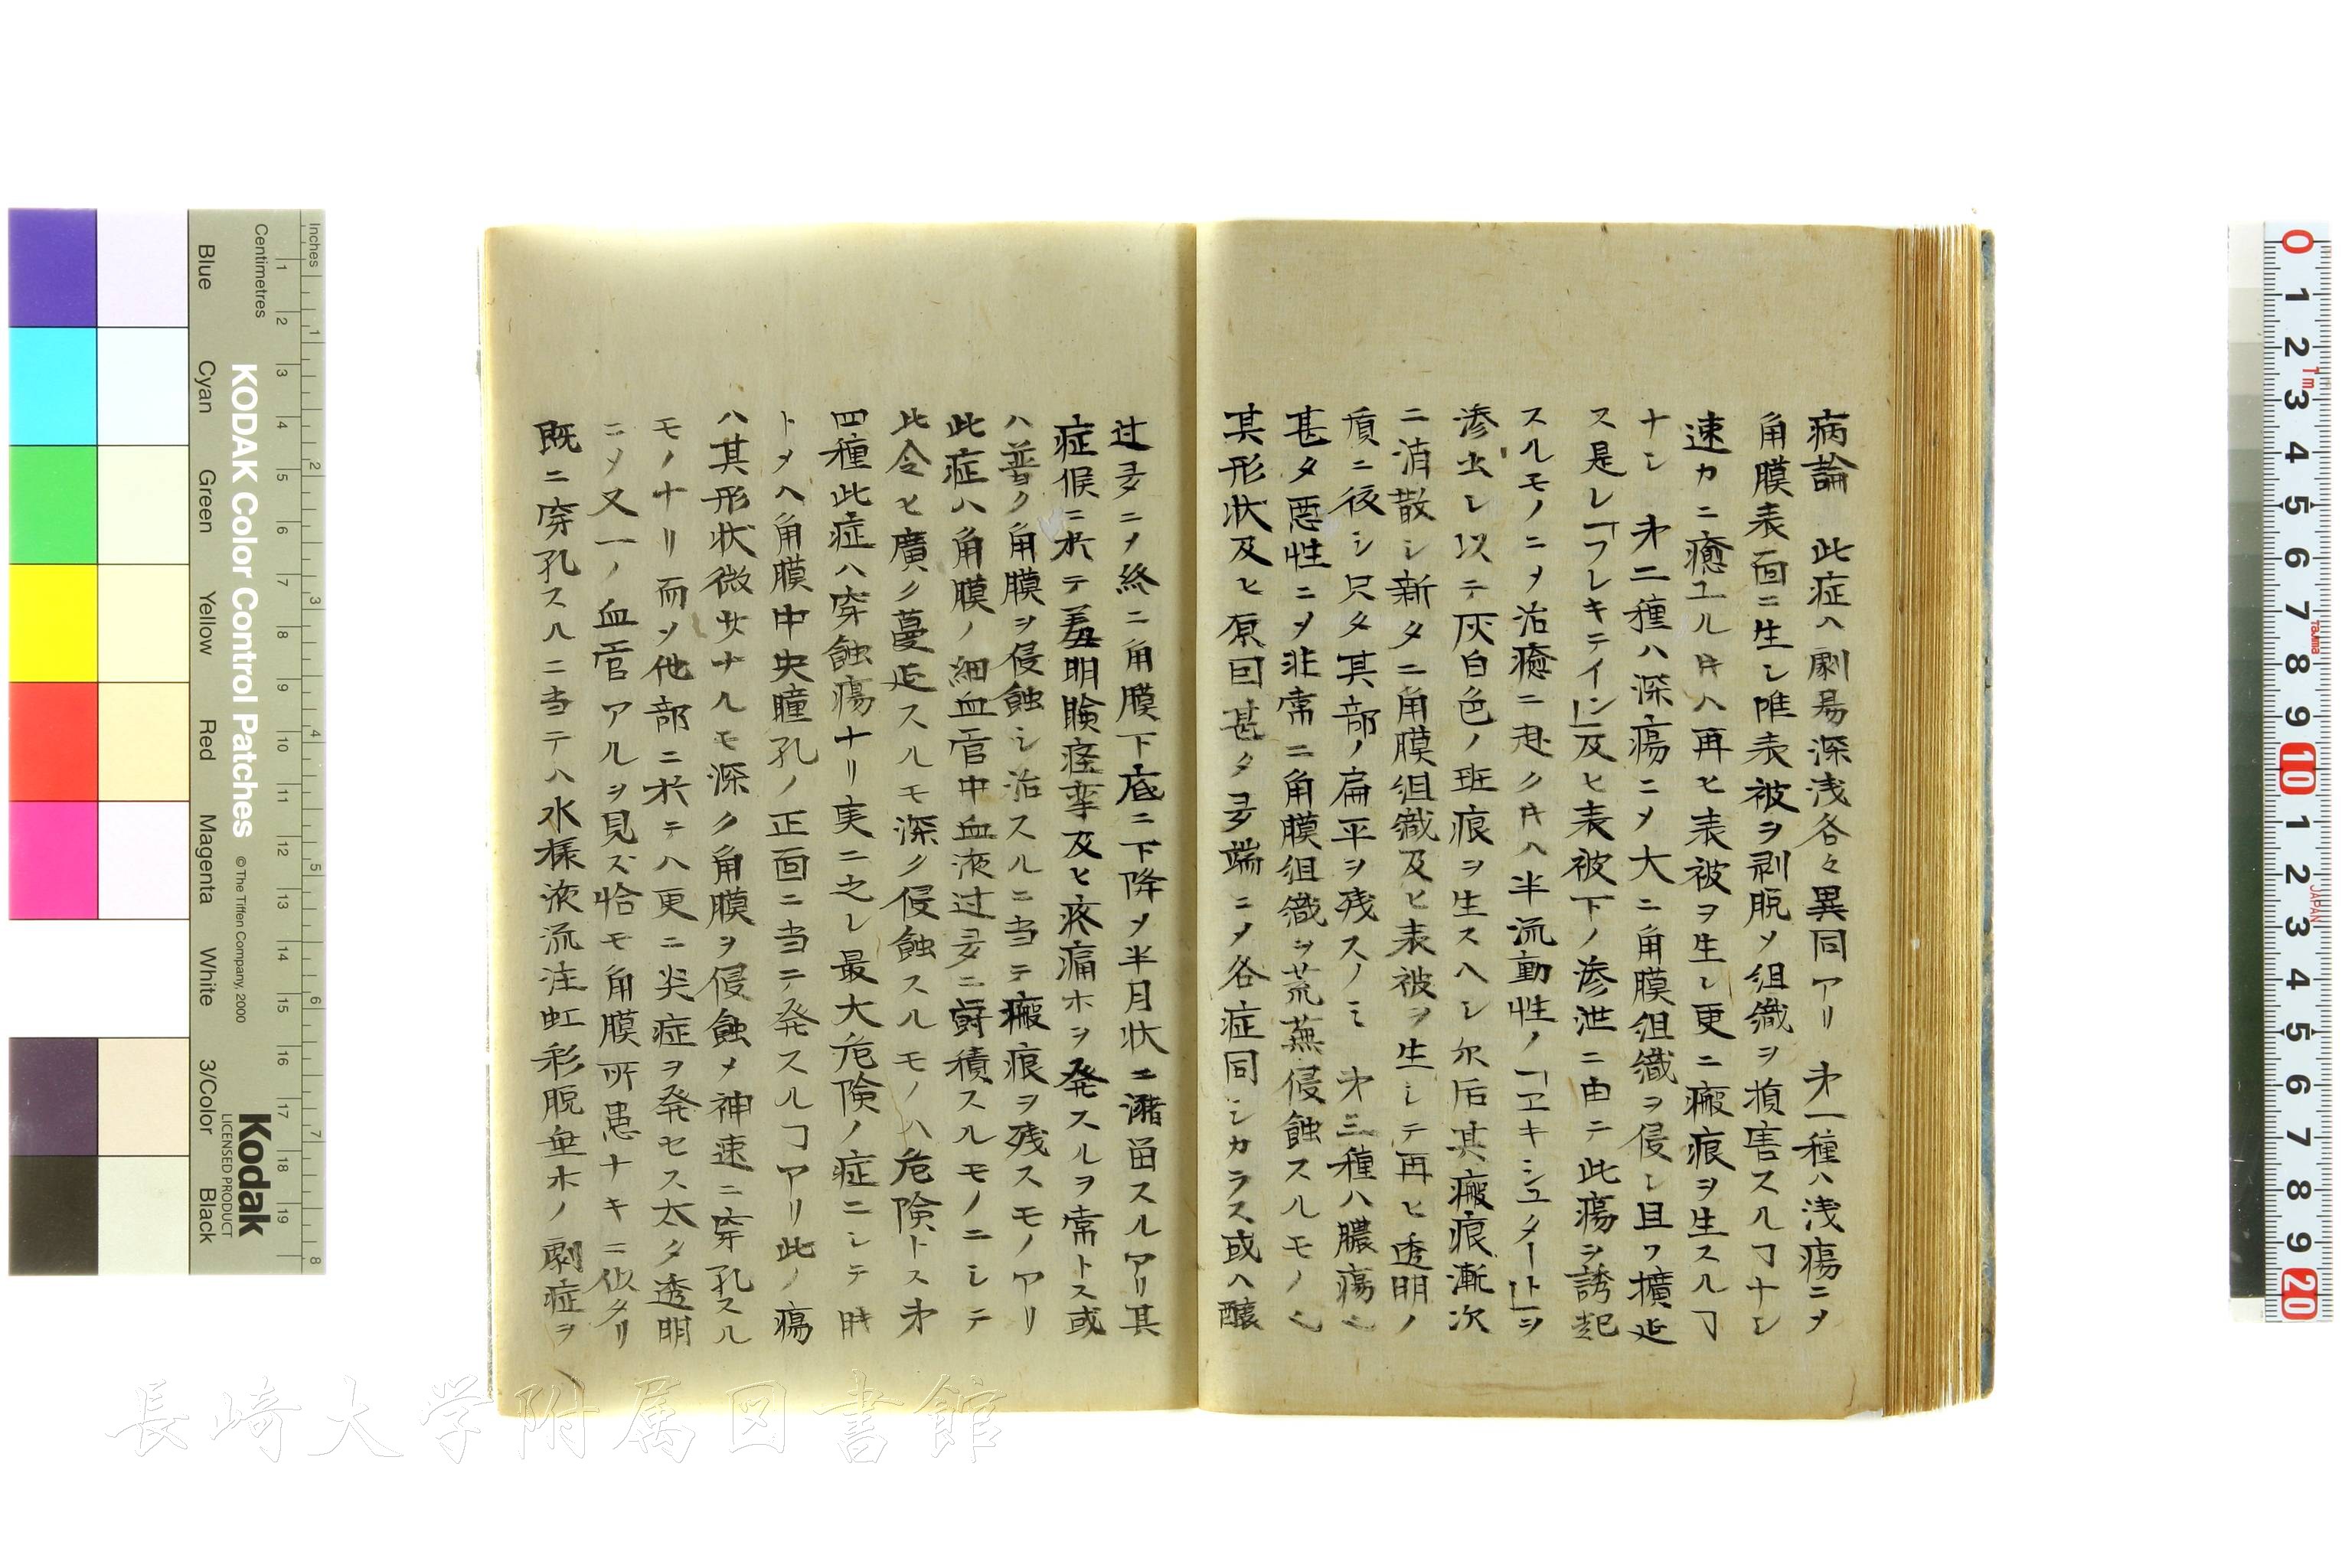 病論　此症ハ劇昜深浅各々異同アリ　㐧一種ハ浅瘍ニメ
角膜表面ニ生シ唯表被ヲ剥脱メ組織ヲ損害スルヿナシ
速カニ癒ユル𪜈ハ再ヒ表被ヲ生シ更ニ瘢痕ヲ生スルヿ
ナシ　㐧二種ハ深瘍ニメ大ニ角膜組織ヲ侵シ且ツ擴延
ス是レ「フレキテイン」及ヒ表被下ノ滲泄ニ由テ此瘍ヲ誘起
スルモノニメ治癒ニ赴ク𪜈ハ半流動性ノ「ヱキシユタート」ヲ
滲出シ以テ灰白色ノ斑痕ヲ生スヘシ尓后其瘢痕漸次
ニ消散シ新タニ角膜組織及ヒ表被ヲ生シテ再ヒ透明ノ
質ニ復シ只タ其部ノ扁平ヲ残スノミ　㐧三種ハ膿瘍也
甚タ悪性ニメ非常ニ角膜組織ヲ荒蕪侵蝕スルモノ也
其形状及ヒ原因甚タ多端ニメ各症同シカラス或ハ釀
过多ニメ終ニ角膜下底ニ下降メ半月状ニ瀦畄スルアリ其
症候ニ於テ羞明瞼痙挛及ヒ疼痛ホヲ発スルヲ常トス或
ハ普ク角膜ヲ侵蝕シ治スルニ当テ瘢痕ヲ残スモノアリ
此症ハ角膜ノ細血管中血液过多ニ欝積スルモノニシテ
比令ヒ廣ク蔓延スルモ深ク侵蝕スルモノハ危険トス㐧
四種此症ハ穿蝕瘍ナリ実ニ之レ最大危険ノ症ニシテ時
トメハ角膜中央瞳孔ノ正面ニ当テ発スルヿアリ此ノ瘍
ハ其形状微少ナルモ深ク角膜ヲ侵蝕メ神速ニ穿孔スル
モノナリ而メ他部ニ於テハ更ニ炎症ヲ発セス太タ透明
ニメ又一ノ血管アルヲ見ズ恰モ角膜所患ナキニ似タリ
既ニ穿孔スルニ当テハ水様液流注虹彩脱垂ホノ劇症ヲ
KODAK Color Control Patches
© The Tiffen Company, 2000
Kodak
LICENSED PRODUCT
Inches
Centimetres
1 2 3 4 5 6 7 8
1 2 3 4 5 6 7 8 9 10 11 12 13 14 15 16 17 18 19
Blue
Cyan
Green
Yellow
Red
Magenta
White
3/Color
Black
0 1 2 3 4 5 6 7 8 9 10 1 2 3 4 5 6 7 8 9 20
1m
Tajima
JAPAN
長崎大学附属図書館